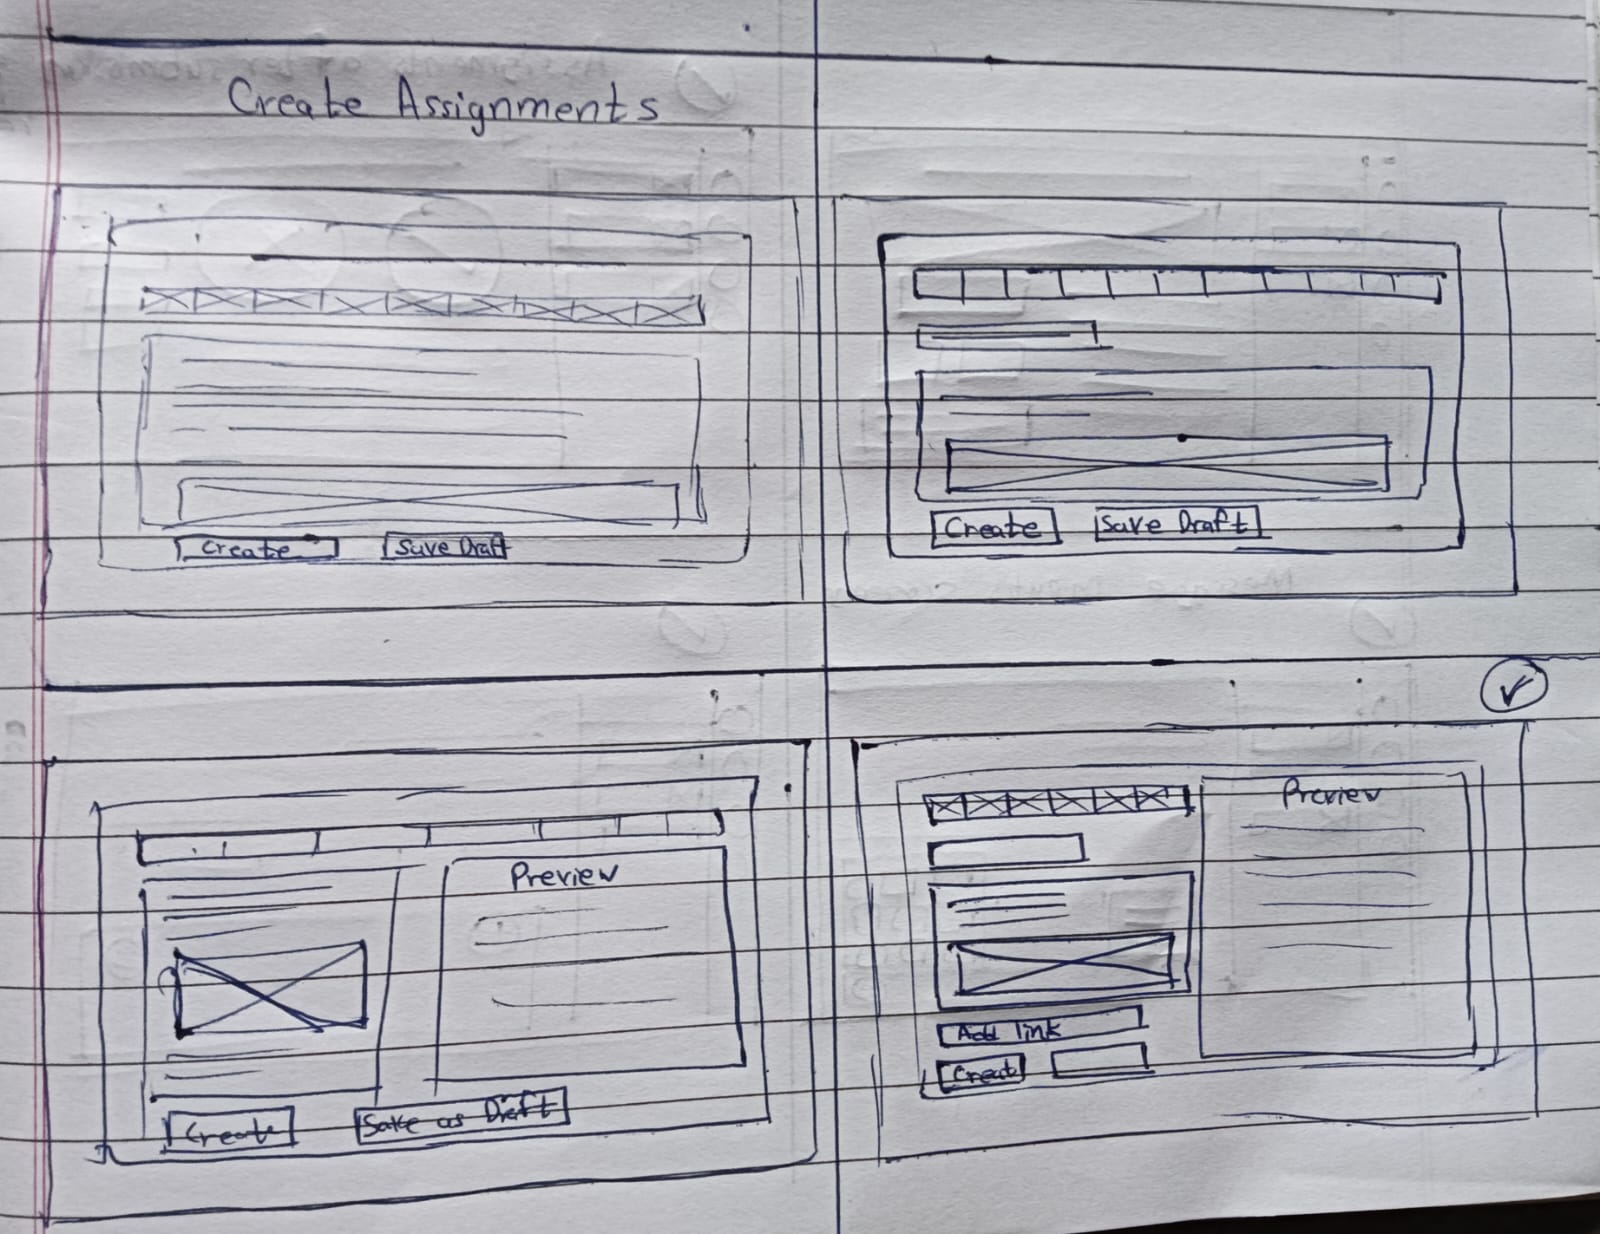 Create Assignments
Create
Save Draft
Create
Save Draft
Preview
Create
Save as Draft
Preview
Add link
Creat